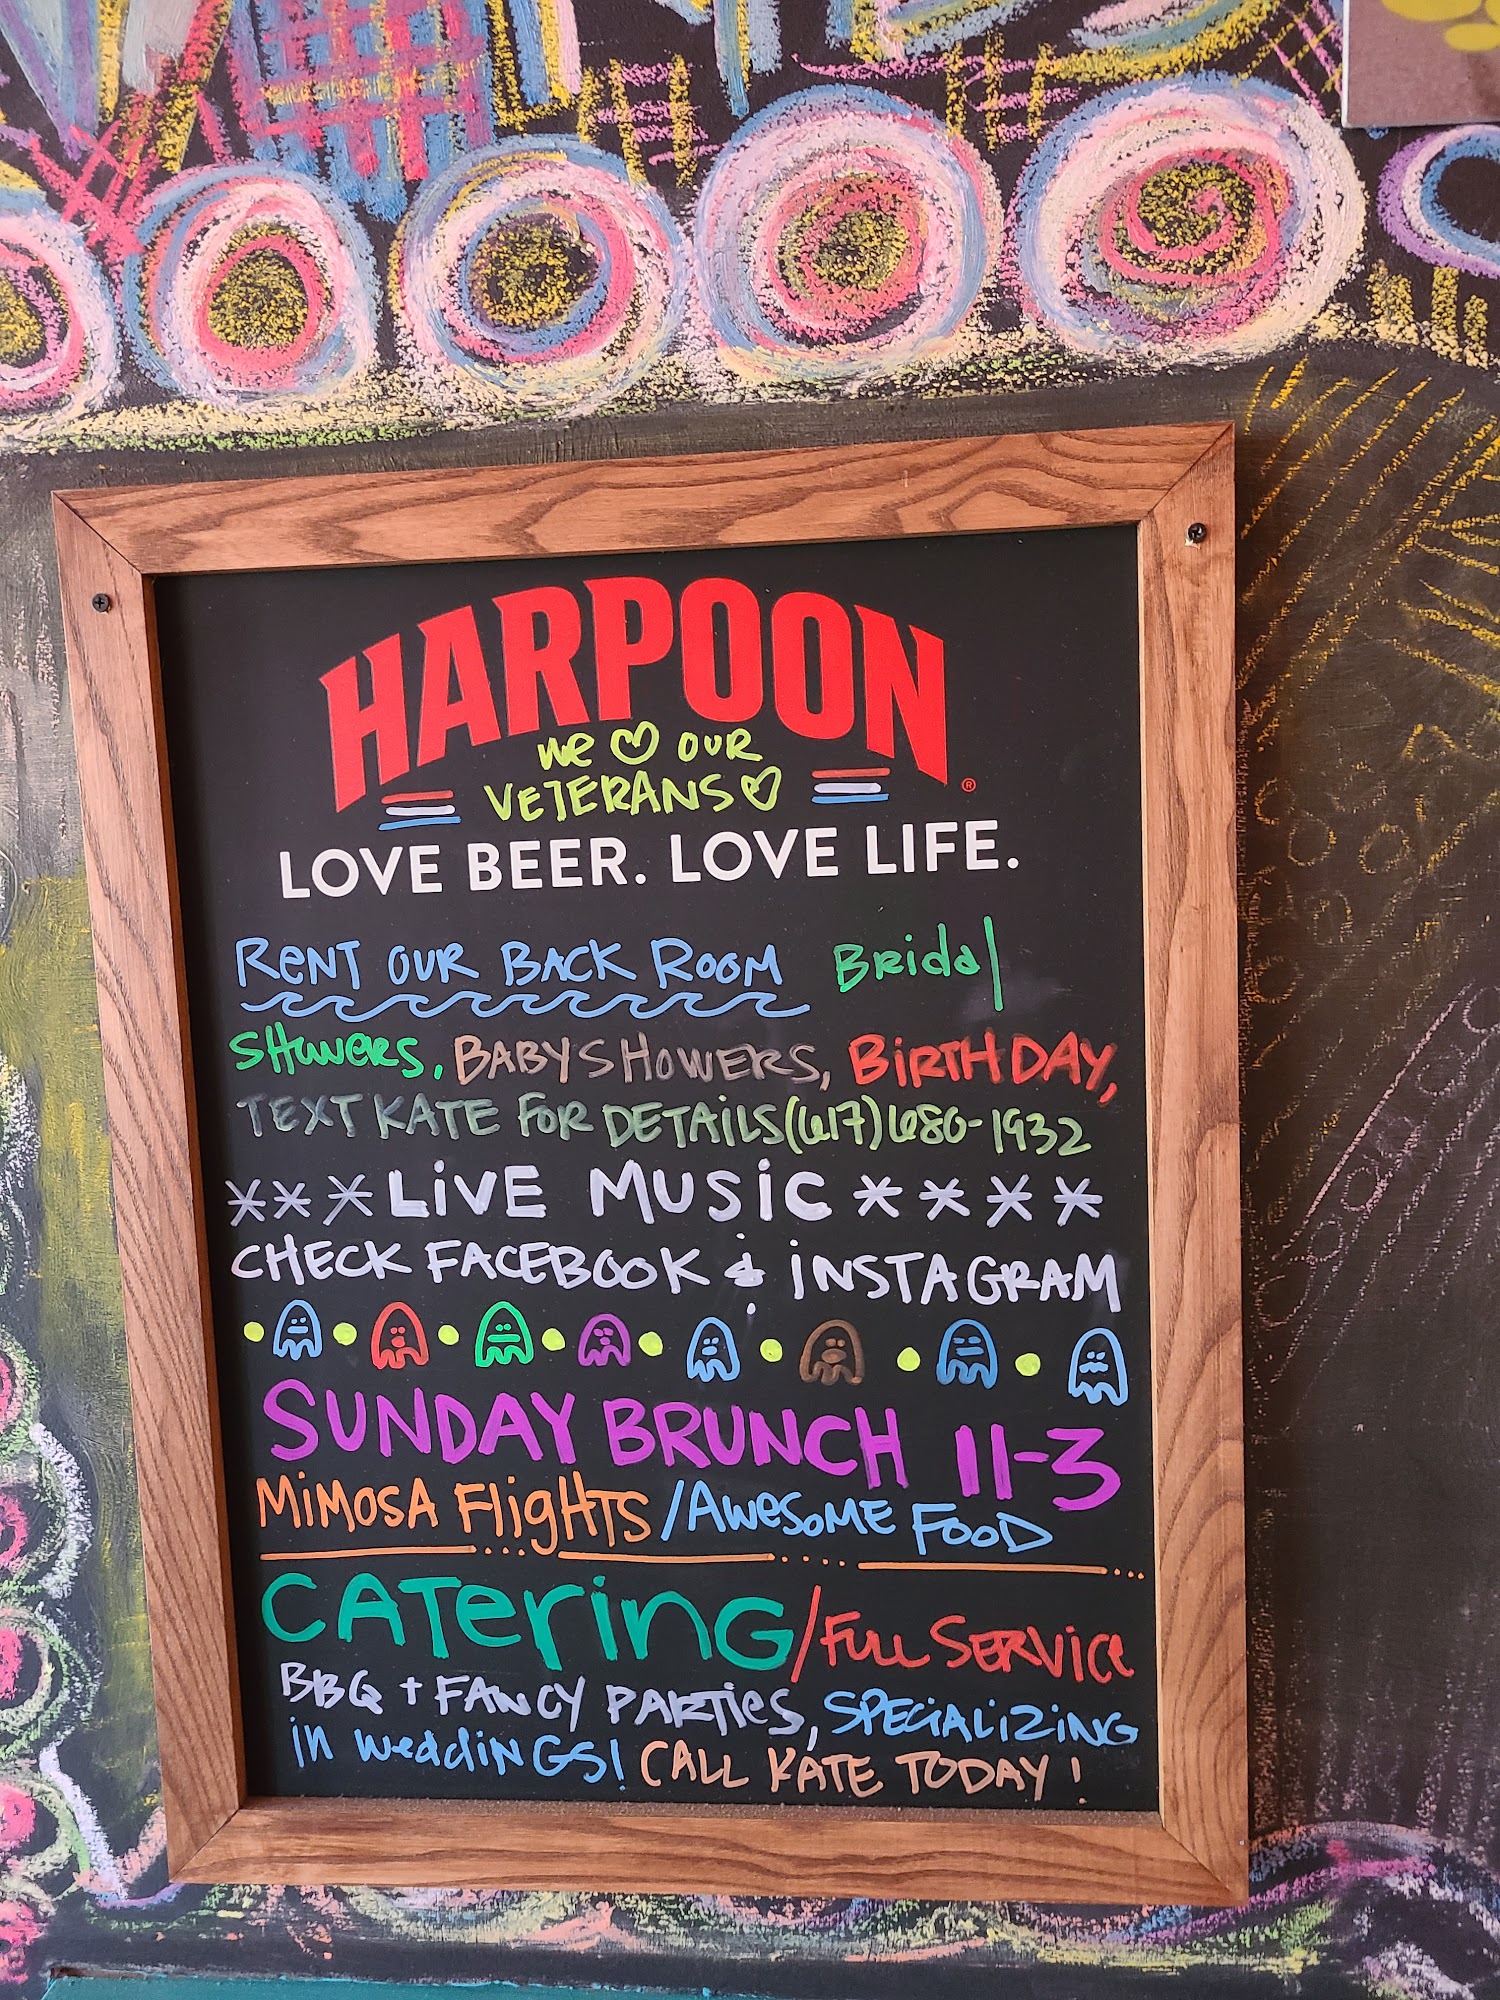 HARPOON
We ♡ OUR
VETERANS ♡
®
LOVE BEER. LOVE LIFE.
RENT OUR BACK ROOM Bridal
SHOWERS, BABY SHOWERS, BIRTHDAY,
TEXT KATE FOR DETAILS (617) 680-1932
***LIVE MUSIC****
CHECK FACEBOOK & INSTAGRAM
SUNDAY BRUNCH 11-3
MIMOSA FligHTS / AWESOME FOOD
CATering / FULL SERVICE
BBQ + FANCY PARTIES, SPECIALIZING
in weddINGS! CALL KATE TODAY!